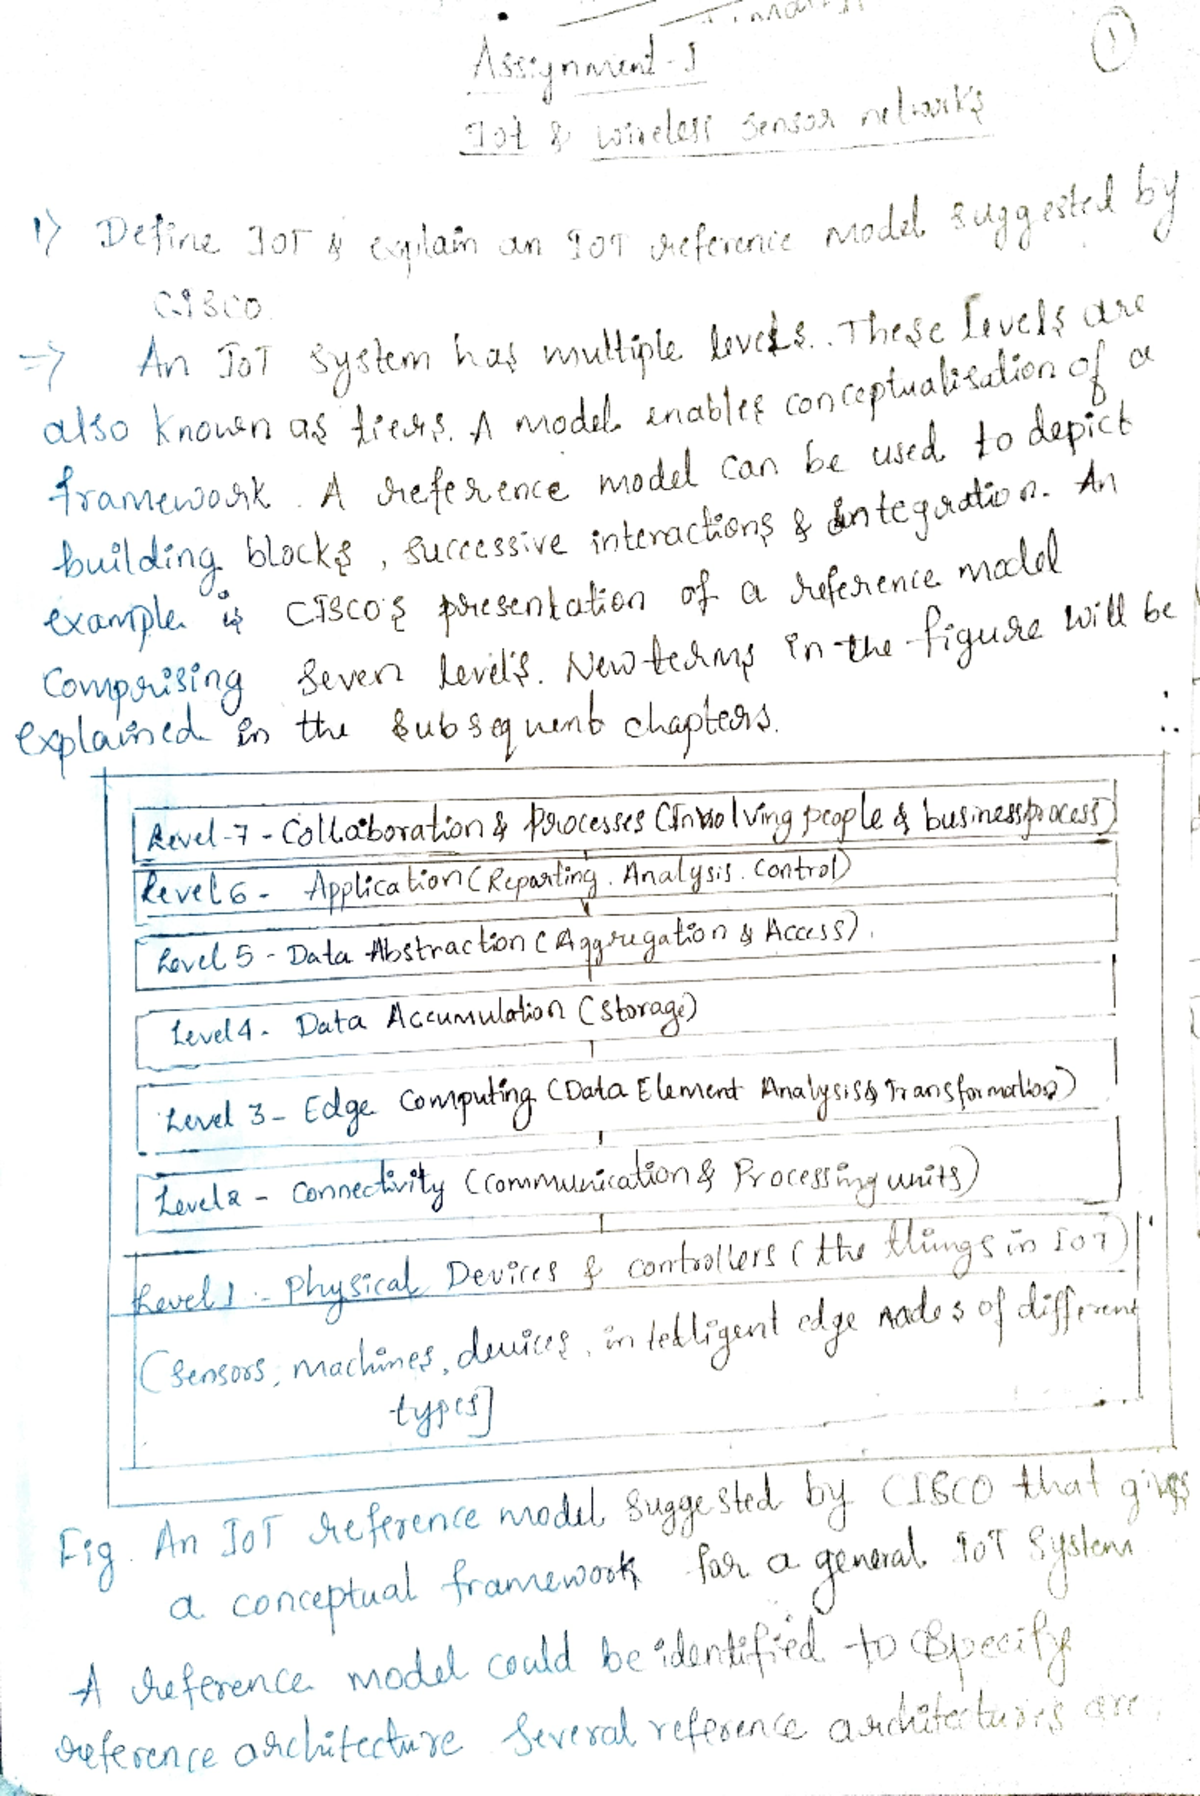 Assignment-I
1
IoT & wireless sensor networks
1) Define IOT & explain an IOT reference model suggested by
CISCO.
=> An IoT system has multiple levels. These levels are
also known as tiers. A model enables conceptualisation of a
framework. A reference model can be used to depict
building blocks, successive interactions & integration. An
example is CISCO's presentation of a reference model
comprising seven level's. New terms in the figure will be
explained in the subsequent chapters.
Level-7 - Collaboration & Processes (Involving people & business process)
Level 6 - Application (Reporting. Analysis. Control)
Level 5 - Data Abstraction (Aggregation & Access).
Level 4 - Data Accumulation (Storage)
Level 3 - Edge Computing (Data Element Analysis & Transformation)
Level 2 - Connectivity (Communication & Processing units)
Level 1 - Physical Devices & controllers (the things in IoT)
(Sensors, machines, devices, intelligent edge nodes of different
types]
Fig. An IoT reference model suggested by CISCO that gives
a conceptual framework for a general IoT System
A reference model could be identified to specify
reference architecture Several reference architectures are